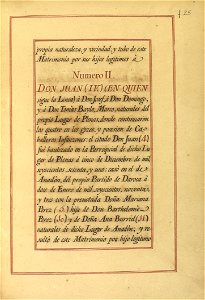 propia naturaleza, y vecindad, y tubo de este
Matrimonio por sus hijos legitimos á
Numero II.
DON JUAN (IV) (EN QUIEN
sigue la Linea) á Don Josef, á Don Domingo,
y á Don Tomás Bayle, Marco, naturales del
propio Lugar de Plenas, donde continuaron
los quatro en los goces, y posesion de Ca-
balleros Infanzones: el citado Don Juan (4)
fué bautizado en la Parroquial de dicho Lu-
gar de Plenas á cinco de Diciembre de mil
seiscientos, setenta, y uno: casó en el de
Anadón, del propio Partido de Daroca á
dos de Enero de mil, seiscientos, noventa,
y tres con la precitada Doña Mariana
Perez hija de Don Bartholomé
Perez y de Doña Ana Borrid
naturales de dicho Lugar de Anadón; y re-
sultó de este Matrimonio por hijo legitimo